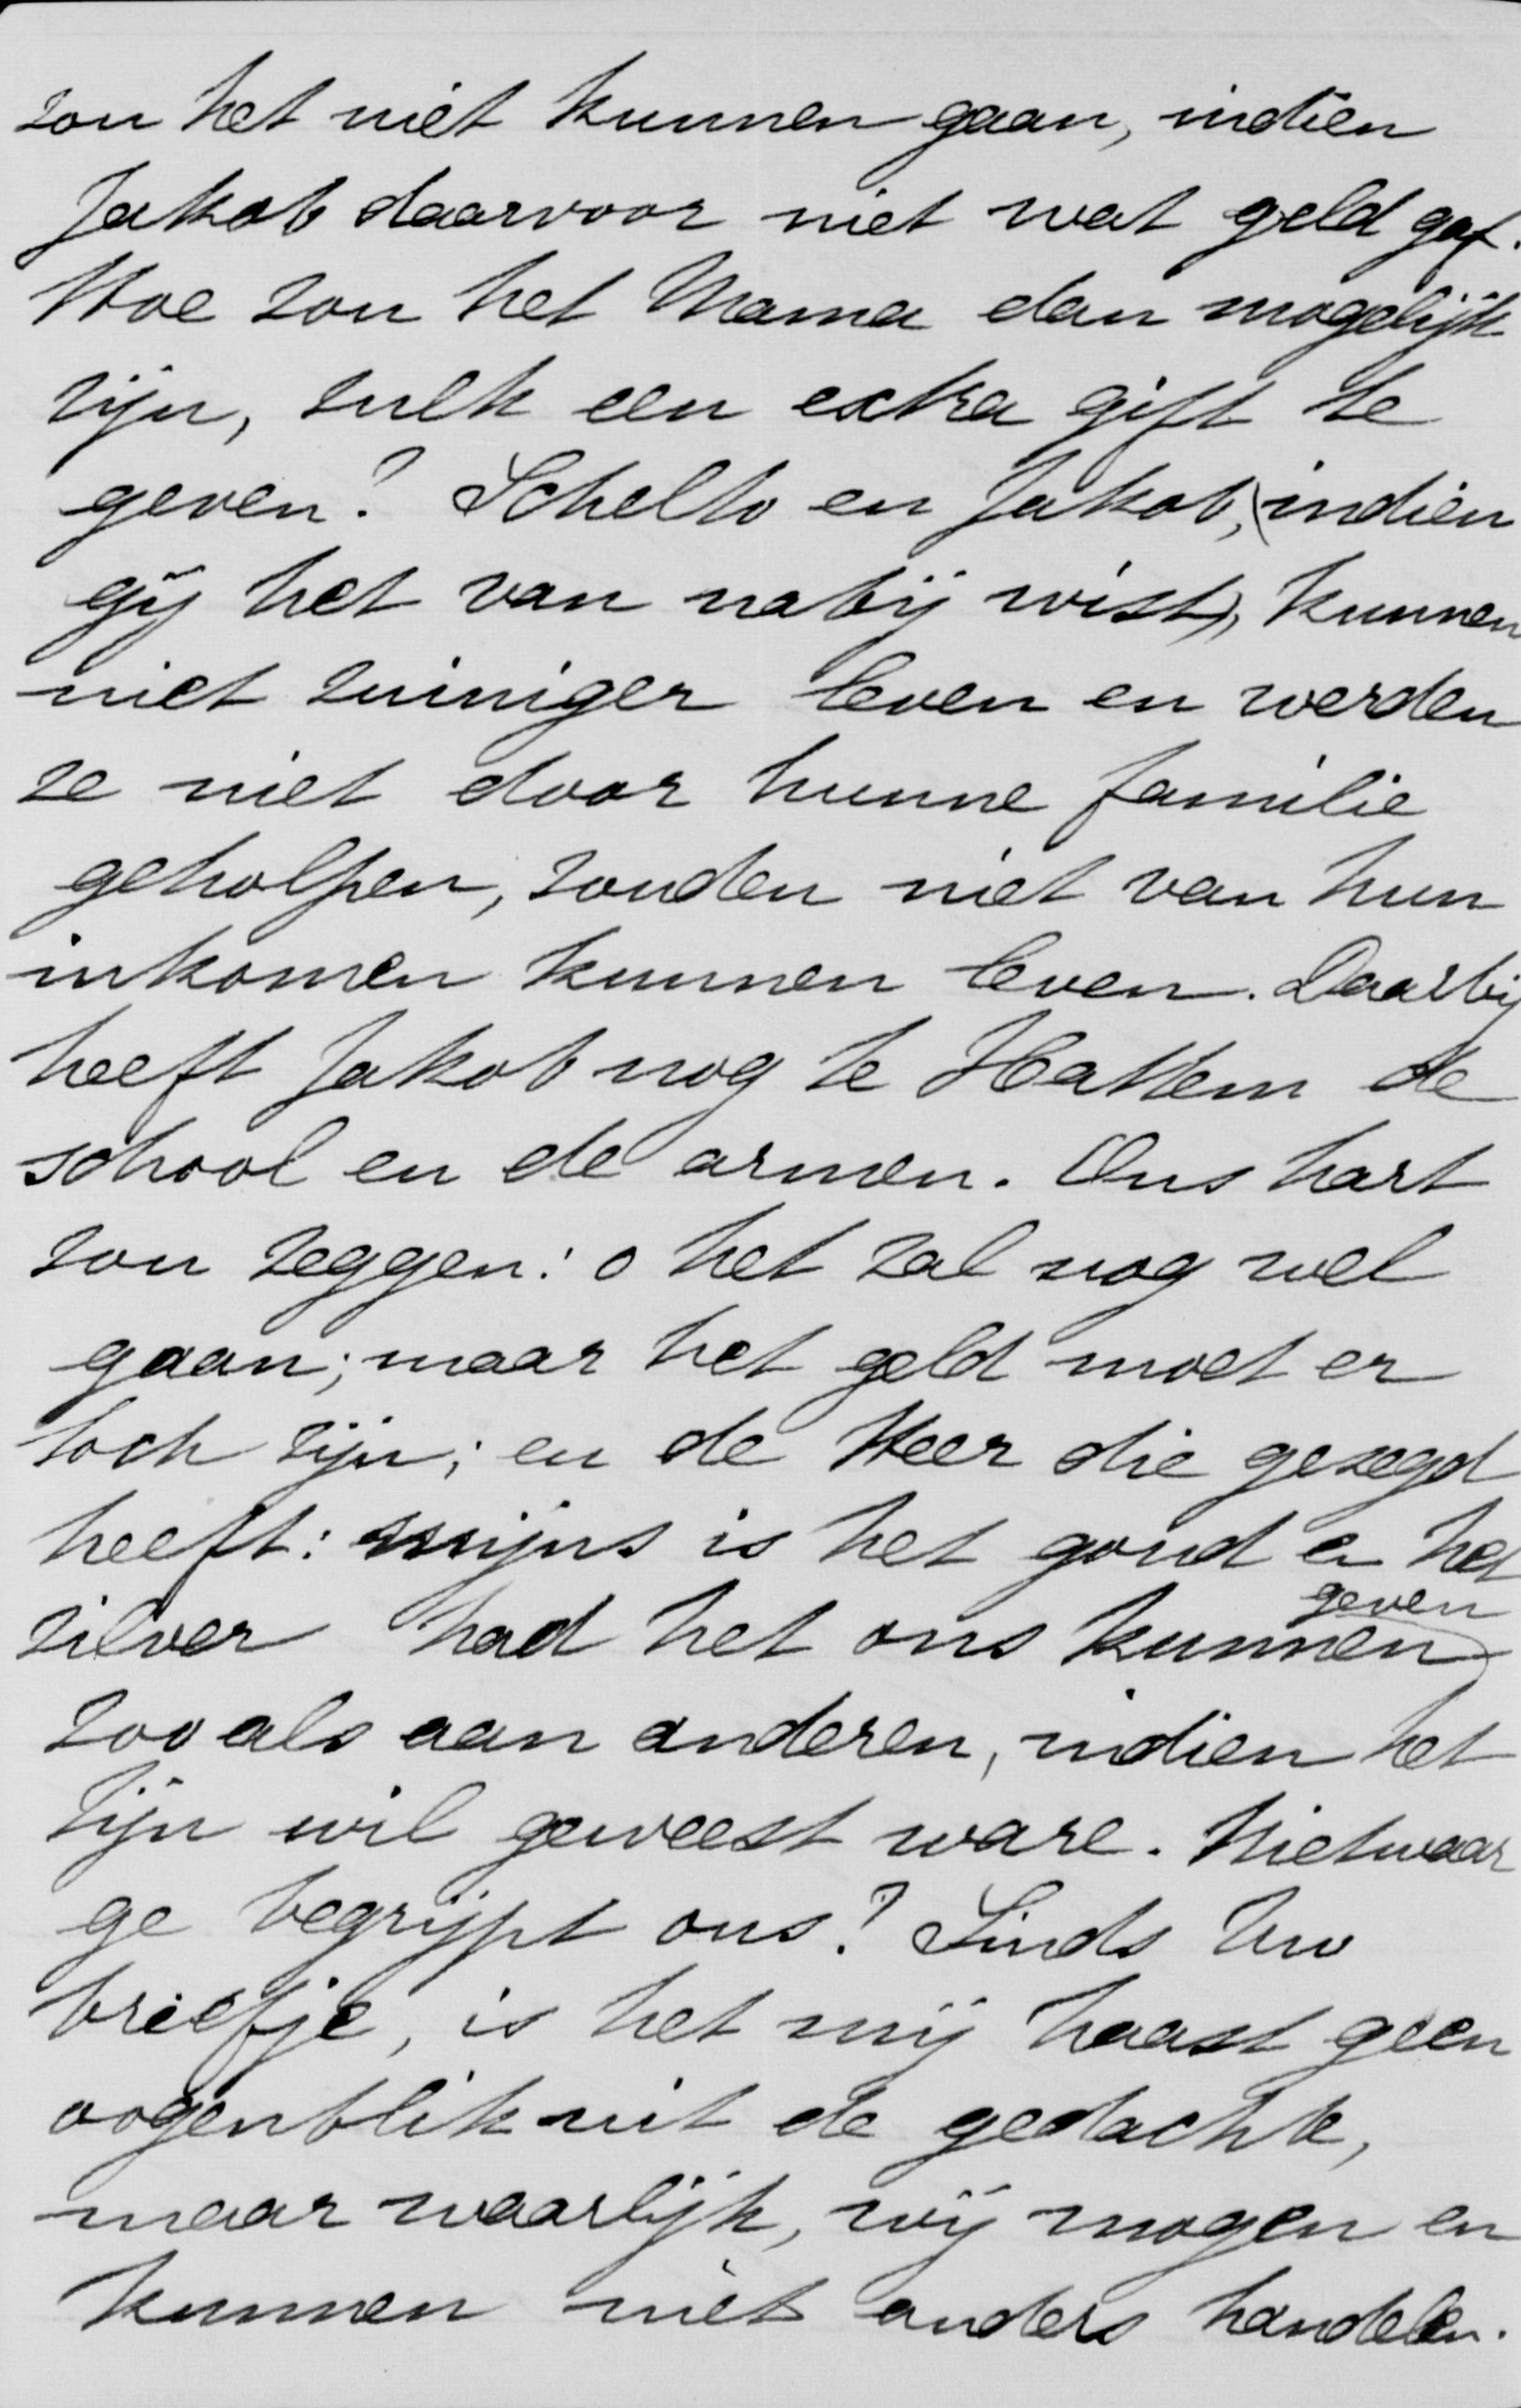 zou het niet kunnen gaan, indien
Jakob daarvoor niet wat geld gaf.
Hoe zou het Mama dan mogelijk
zijn, zulk een extra gift te
geven? Schelto en Jakob, (indien
gij het van nabij wist), kunnen
niet zuiniger leven en werden
ze niet door hunne familie
geholpen, zouden niet van hun
inkomen kunnen leven. Daarbij
heeft Jakob nog te Hattem de
school en de armen. Ons hart
zou zeggen: o het zal nog wel
gaan; maar het geld moet er
toch zijn; en de Heer die gezegd
heeft: mijns is het goud en het
zilver had het ons kunnen geven
zooals aan anderen, indien het
Zijn wil geweest ware. Nietwaar
ge begrijpt ons? Sinds Uw
briefje, is het mij haast geen
oogenblik uit de gedachte,
maar waarlijk, wij mogen en
kunnen niet anders handelen.